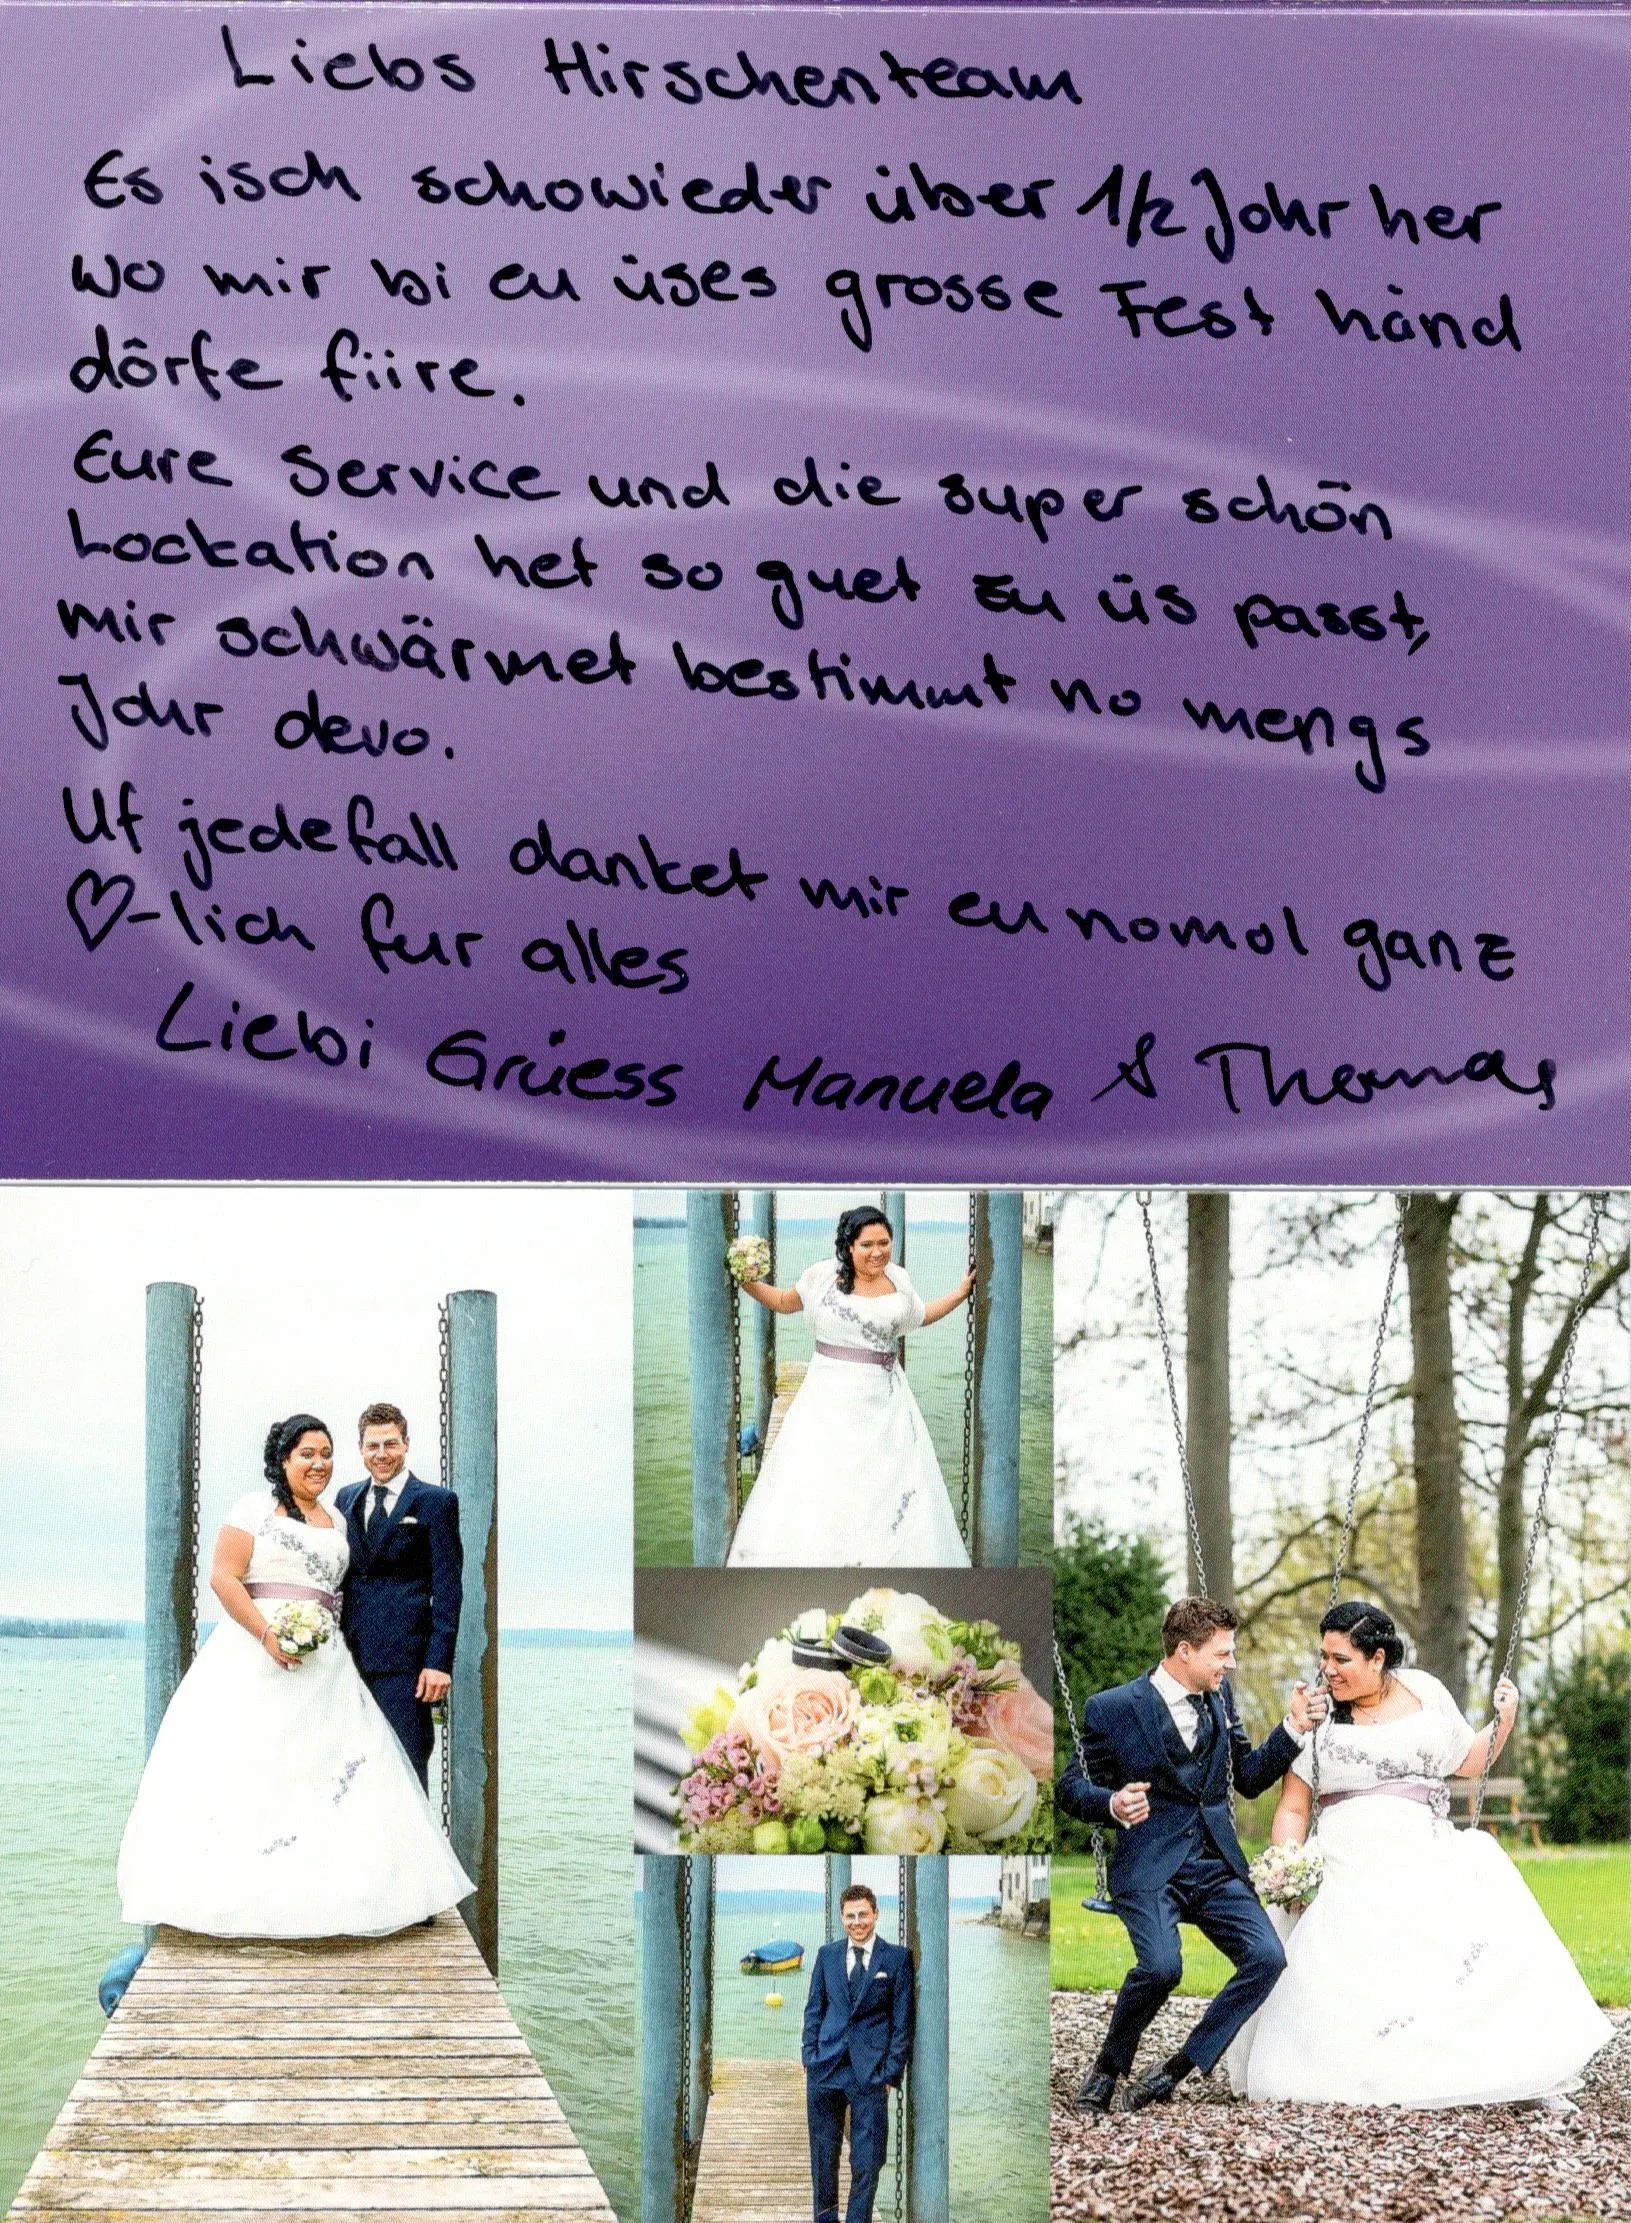 Liebs Hirschenteam
Es isch schowieder über 1/2 Johr her
wo mir bi eu üses grosse Fest händ
dörfe fiire.
Eure Service und die super schön
Lockation het so guet zu üs passt,
mir schwärmet bestimmt no mengs
Johr devo.
Uf jedefall danket mir eu nomol ganz
♡-lich für alles
Liebi Grüess Manuela & Thomas